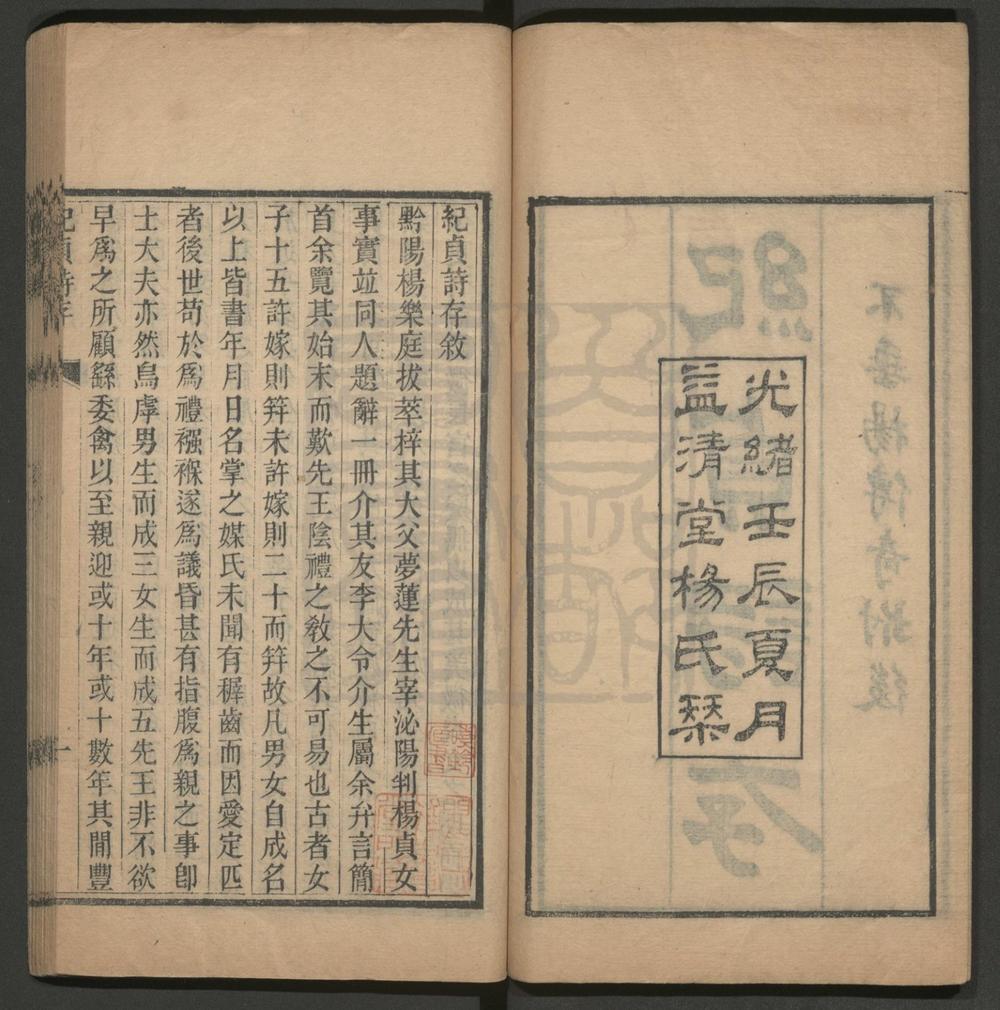 光緒壬辰夏月
益清堂楊氏栞
紀貞詩存敘
黔陽楊樂庭拔萃梓其大父夢蓮先生宰泌陽判楊貞女
事實並同人題辭一冊介其友李大令介生屬余弁言簡
首余覽其始末而歎先王陰禮之敎之不可易也古者女
子十五許嫁則筓未許嫁則二十而筓故凡男女自成名
以上皆書年月日名掌之媒氏未聞有稺齒而因愛定匹
者後世苟於爲禮襁褓遂爲議昏甚有指腹爲親之事卽
士大夫亦然烏虖男生而成三女生而成五先王非不欲
早爲之所顧繇委禽以至親迎或十年或十數年其閒豐
紀貞詩存
一